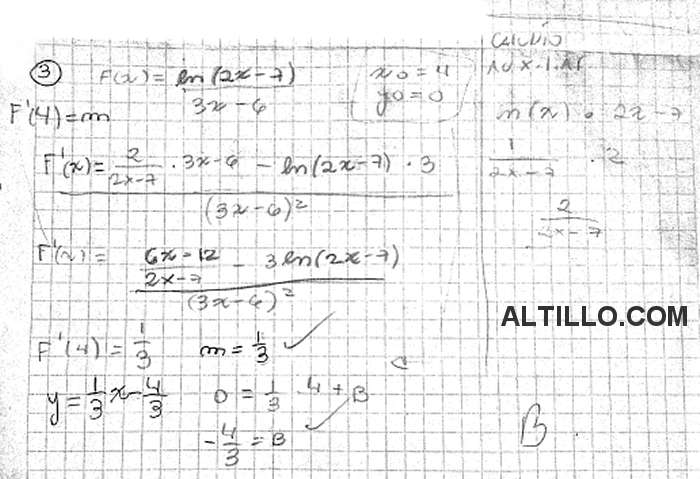 ③ F(x) = ln(2x-7) / 3x-6
x0 = 4
y0 = 0
F'(4) = m
F'(x) = 2/2x-7 · 3x-6 - ln(2x-7) · 3 / (3x-6)²
F'(x) = 6x-12/2x-7 - 3ln(2x-7) / (3x-6)²
F'(4) = 1/3 m = 1/3 ✓
y = 1/3 x - 4/3 0 = 1/3 · 4 + B
-4/3 = B ✓
n(x) · 2x-7
1/2x-7 · 2
2/2x-7
ALTILLO.COM
B